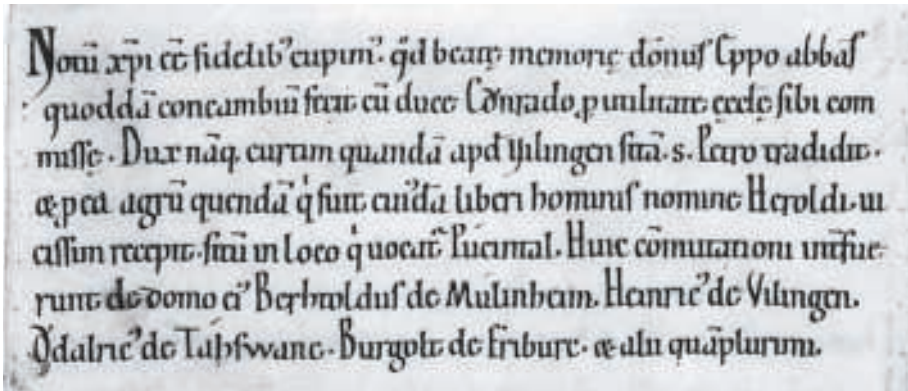 Notū xp̄i eē fidelib᷒ cupim᷒. qd̄ beatę memorię dōnus Eppo abbas
quoddā concambiū fecit cū duce Cōnrado, p utilitate ęcclę sibi com
missę. Dux nāq, curtim quandā apd̄ Vilingen sitā. s. Petro tradidit.
& p ea agrū quendā qͥ fuit cuiᵈā liberi hominis nomine Heroldi. ui
cissim recepit. sitū in loco qͥ uocat᷒ Rúcintal. Huic cōmutationi int̄fue
runt de domo ei᷒ Bertholdus de Mulinheim. Heinric᷒ de Vilingen.
Ǒdalric᷒ de Tahswanc. Burgolt de Friburc. & alii quāplurimi.